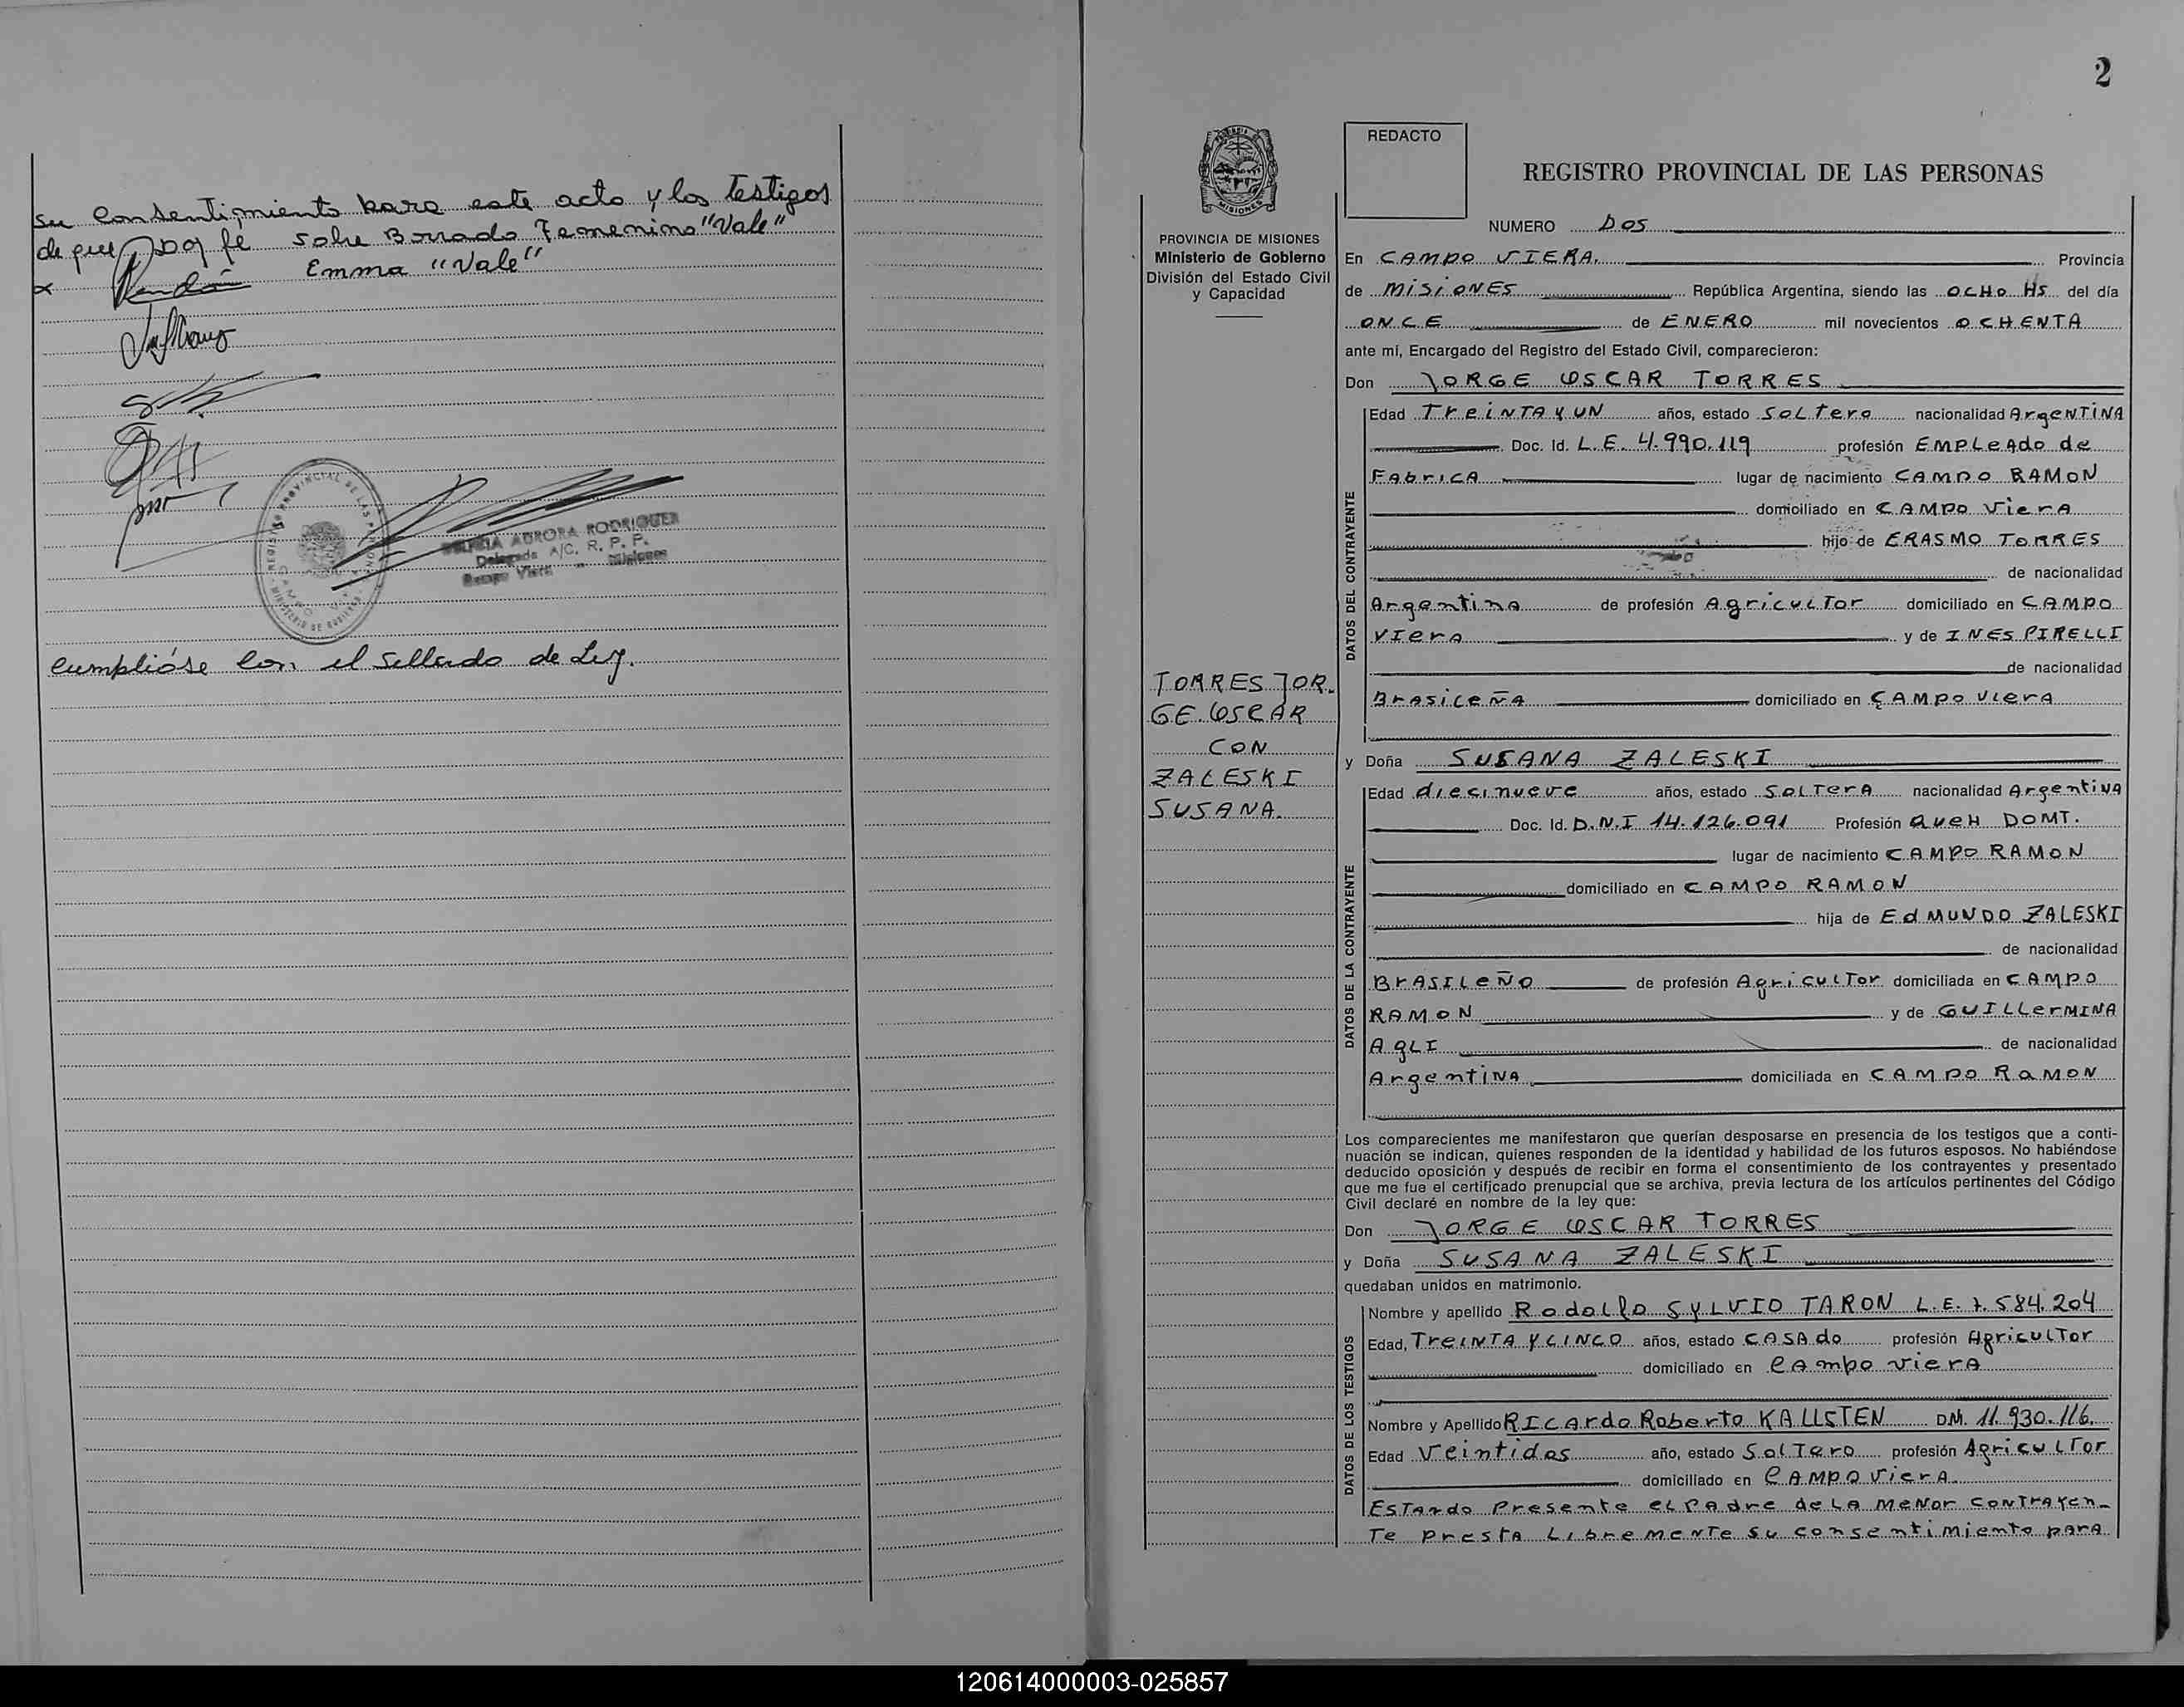 su consentimiento para este acto y los testigos
de que Doy fé sobre Borrado Femenino "Vale"
Emma "Vale"
x
REGISTRO PROVINCIAL DE LAS
MINISTERIO DE GOBIERNO
AURORA RODRIGUEZ
Delegada A/C. R. P. P.
Campo Viera - Misiones
cumplióse con el sellado de Ley.
2
REDACTO
REGISTRO PROVINCIAL DE LAS PERSONAS
MISIONES
PROVINCIA DE MISIONES
Ministerio de Gobierno
División del Estado Civil
y Capacidad
NUMERO DOS
En CAMPO VIERA, Provincia
de MISIONES República Argentina, siendo las OCHO HS del día
ONCE de ENERO mil novecientos OCHENTA
ante mí, Encargado del Registro del Estado Civil, comparecieron:
Don JORGE OSCAR TORRES
Edad TreiNTA Y UN años, estado SoLtero nacionalidad ArgeNTiNA
Doc. Id. L.E. 4.990.119 profesión EMPLeAdo de
FAbricA lugar de nacimiento CAMPO RAMON
domiciliado en CAMPO VierA
hijo de ERASMO TORRES
de nacionalidad
Argentina de profesión AgricuLTor domiciliado en CAMPO
VIerA y de INES PIRELLI
de nacionalidad
BrasiLeÑA domiciliado en CAMPO VIerA
TORRES JOR.
GE OSCAR
CON
ZALESKI
SUSANA.
y Doña SUSANA ZALESKI
Edad diecinueve años, estado SoLTerA nacionalidad ArgentiNA
Doc. Id. D.N.I 14.126.091 Profesión QUeH DOMT.
lugar de nacimiento CAMPO RAMON
domiciliado en CAMPO RAMON
hija de EdMUNDO ZALESKI
de nacionalidad
BrASILeÑO de profesión AgricuLTor domiciliada en CAMPO
RAMON y de GUILLerMINA
AgLI de nacionalidad
ArgentiNA domiciliada en CAMPO RaMON
DATOS DEL CONTRAYENTE
DATOS DE LA CONTRAYENTE
Los comparecientes me manifestaron que querían desposarse en presencia de los testigos que a conti-
nuación se indican, quienes responden de la identidad y habilidad de los futuros esposos. No habiéndose
deducido oposición y después de recibir en forma el consentimiento de los contrayentes y presentado
que me fue el certificado prenupcial que se archiva, previa lectura de los artículos pertinentes del Código
Civil declaré en nombre de la ley que:
Don JORGE OSCAR TORRES
y Doña SUSANA ZALESKI
quedaban unidos en matrimonio.
DATOS DE LOS TESTIGOS
Nombre y apellido RodoLfo SYLVIO TARON L.E. 7.584.204
Edad, TreINTA Y CINCO años, estado CASAdo profesión AgricuLTor
domiciliado en CAmpo VierA
Nombre y Apellido RICArdo Roberto KALLSTEN DM. 11.930.116.
Edad Veintidos año, estado SolTero profesión AgricuLTor
domiciliado en CAMPO VierA.
ESTAndo Presente eL PAdre de LA MeNor CONTrAYen-
Te PrestA LibreMeNTe Su consentiMiento parA
120614000003-025857